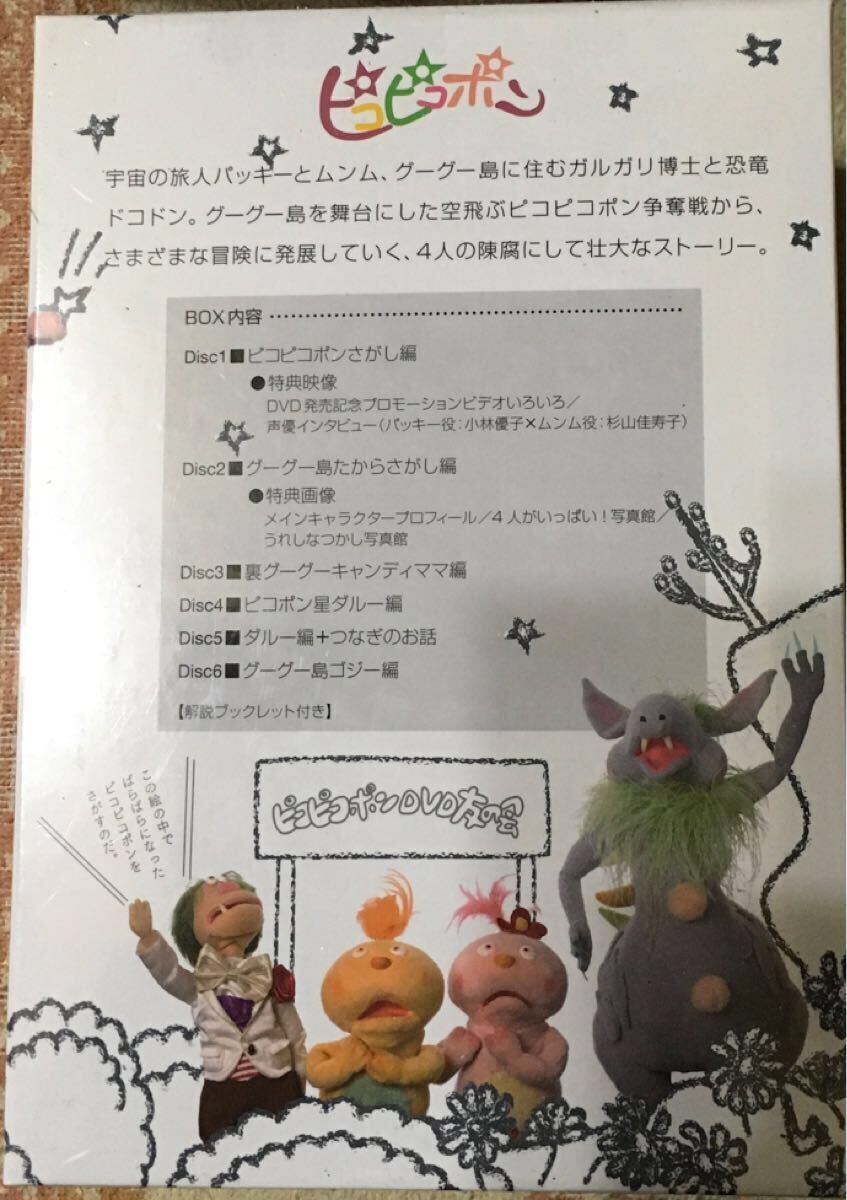 ピコピコポン
宇宙の旅人パッキーとムンム、グーグー島に住むガルガリ博士と恐竜
ドコドン。グーグー島を舞台にした空飛ぶピコピコポン争奪戦から、
さまざまな冒険に発展していく、4人の陳腐にして壮大なストーリー。
BOX内容
Disc1■ピコピコポンさがし編
●特典映像
DVD発売記念プロモーションビデオいろいろ／
声優インタビュー（パッキー役：小林優子×ムンム役：杉山佳寿子）
Disc2■グーグー島たからさがし編
●特典画像
メインキャラクタープロフィール／4人がいっぱい！写真館／
うれしなつかし写真館
Disc3■裏グーグーキャンディママ編
Disc4■ピコポン星ダルー編
Disc5■ダルー編＋つなぎのお話
Disc6■グーグー島ゴジー編
【解説ブックレット付き】
この絵の中で
ばらばらになった
ピコピコポンを
さがすのだ。
ピコピコポンDVD友の会